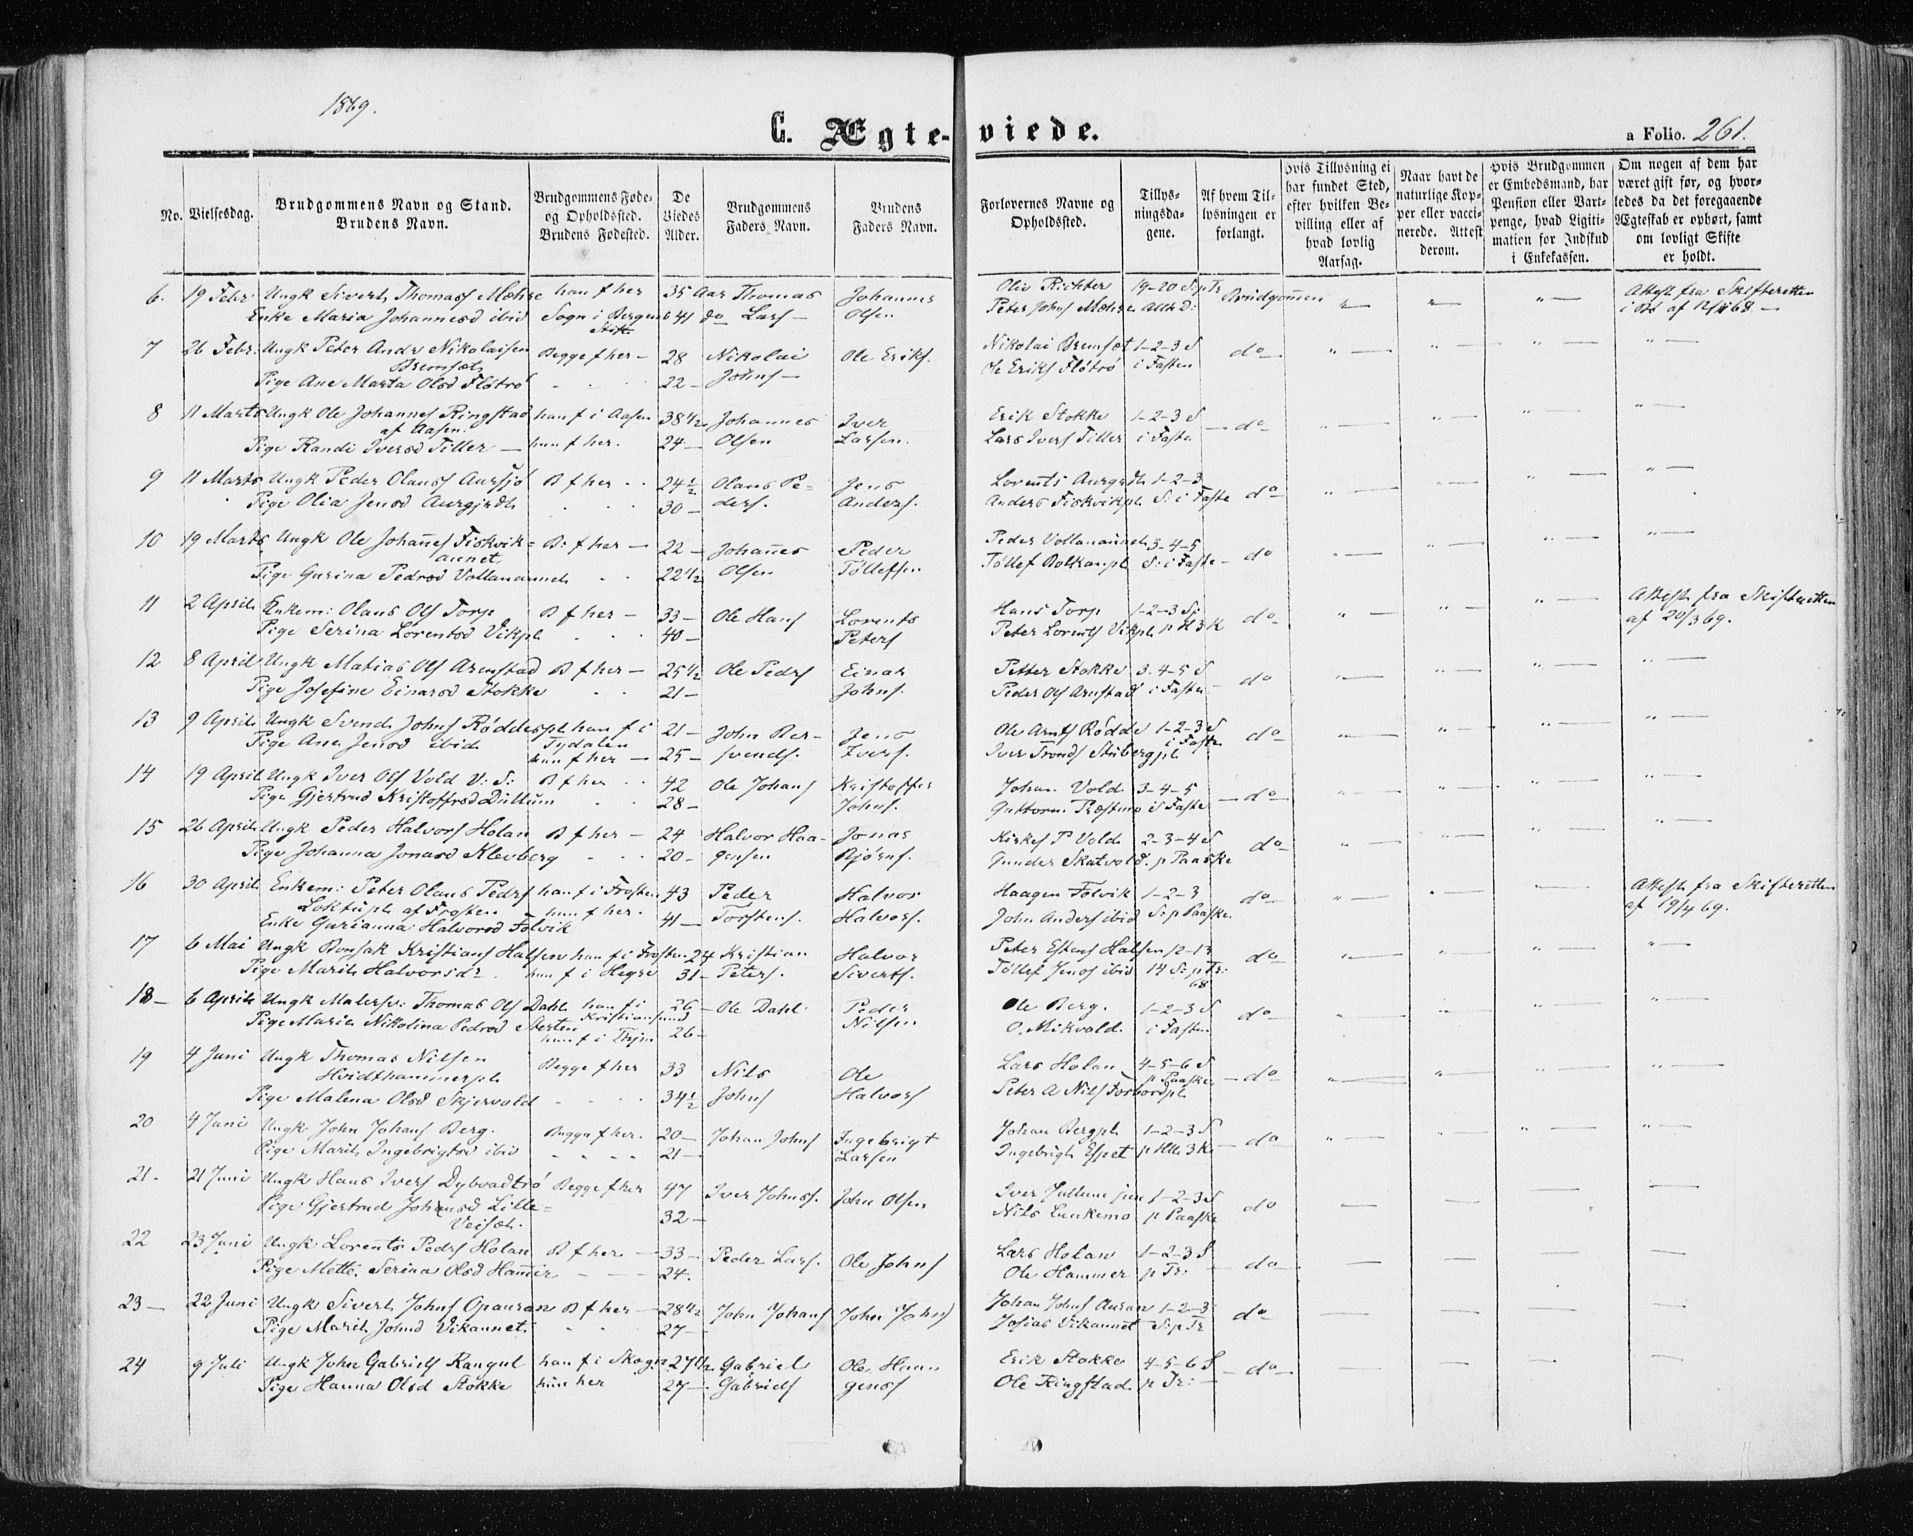 1869.
C. Ægte-viede.
a Folio. 261.
No.
Vielsesdag.
Brudgommens Navn og Stand.
Brudens Navn.
Brudgommens Føde-
og Opholdssted.
Brudens Fødested.
De
Viedes
Alder.
Brudgommens
Faders Navn.
Brudens
Faders Navn.
Forlovernes Navne og
Opholdssted.
Tillys-
ningsda-
gene.
Af hvem Til-
lysningen er
forlangt.
Hvis Tillysning ei
har fundet Sted,
efter hvilken Be-
villing eller af
hvad lovlig
Aarsag.
Naar havt de
naturlige Kop-
per eller vacci-
nerede. Attest
derom.
Hvis Brudgommen
er Embedsmand, har
Pension eller Vart-
penge, hvad Legiti-
mation for Indskud
i Enkekassen.
Om nogen af dem har
været gift før, og hvor-
ledes da det foregaaende
Ægteskab er ophørt, samt
om lovligt Skifte
er holdt.
6. 19 Febr. Ungk Sivert Thomass Mæhre han f her 35 Aar Thomas Johannes Olie Richter 19-20 S p Tr Brudgommen " " " Attest fra Skifteretten
Enke Maria Johannesd ibid Sogn i Bergens Stift 41 do Lars Olsen Peter Johns Mæhre
7 26 Febr. Ungk Peter Andr Nikolaisen Begge f her 28 Nikolai Ole Eriks. Nikolai Bremset 1-2-3 S do " " " "
Bremset
Pige Ane Marta Olsd Fløtrø 22 Johns Ole Eriks Fløtrø i Fasten
8 11 Marts Ungk Ole Johannes Ringstad han f i Aasen 38 1/2 Johannes Iver Erik Stokke 1-2-3 S do " " " "
af Aasen.
Pige Randi Iversd Tiller hun f her. 24 Olsen Larsen. Lars Ivers Tiller i Faste
9 11 Marts Ungk Peder Olauss Aursjø B f her 24 1/2 Olaus Pe- Jens Lorents 1-2-3 do " " "
Pige Olia Jensd 30 ders. Anders. Anders Fiskvikpl. S: i Faste
10 19 Marts Ungk Ole Johannes Fiskvik- B: f her 22 Johannes Peder Peder Vollanaunet 3-4-5 do " " " "
aunet
Pige Gurina Pedersd Vollanaunet 22 1/2 Olsen Tøllefsen Tøllef S: i Faste
11 2 April Enkem: Olaus Ols Torp B f her 33 Ole Hans Lorents Hans Torp 1-2-3 S: do " " " Attest fra Skifteretten
Pige Serina Lorentsd Vikpl. 40 Peters Peter Lorents Vikpl. p H 3 K af 20/3 69.
12 8 April Ungk Matias Ols Arnstad B f her 25 1/2 Ole Peders Einar Petter Stokke 3-4-5 S do " " " "
Pige Josefine Einarsd Stokke 21 Johns. Peder Ols Arnstad i Faste
13 9 April Ungk Svend Johns Røddespl han f i 21 John Ber- Jens Ole Arnts Rødde 1-2-3 S do " " " "
Pige Ane Jensd ibid Tydalen 25 svends. Ivers. Iver Tronds Stubergpl. i Fasten
hun f her
14 19 April Ungk Iver Ols Vold V: S: B f her 42 Ole Johans Kristoffer Johan Vold 3-4-5 do " " " "
Pige Gjertrud Kristoffersd Dullum 28 Johns. Guttorm Præstmo S i Faste
15 26 April Ungk Peder Halvors Holan B f her 24 Halvor Haa- Jonas Kirkes P Vold 2-3-4 S do " " " "
Pige Johanna Jonasd Klevberg 20 gensen Bjørns. Gunder Skatvold. p Paaske
16 30 April Enkem: Peter Olaus Peders han f i Frosten 43 Peder Halvor Haagen Folvik 1-2-3 do " " " Attest fra Skifteretten
af Frosten hun f her.
Enke Gurianna Halvorsd Folvik 41 Torstens. Halvors. John Anders ibid S: p Paaske. af 19/4 69.
17 6 Mai Ungk Bonsak Kristians Halsen han f i Frosten 24 Kristian Halvor Peter Estens Halsen 12-13 do " " " "
Pige Marit Halvorsdr. hun f i Hegre 31 Peters. Siverts. Tøllef Jens ibid 14 S: p Tr: 68
18 6 April Ungk Malersv: Thomas Ols Dahl han f i 26 Ole Dahl Peder Ole Berg. 1-2-3 S do " " " "
Kristiansund
Pige Marit Nikolina Pedersd hun f i 26 Nilsen O. Mikvold. i Fasten
19 4 Juni Ungk Thomas Nilsen Begge f her 33 Nils Ole Lars Holan 4-5-6 S do " " " "
Hvidthammerpl
Pige Malena Olsd Skjervold 34 1/2 Johns Halvors Peter A Nils Forbordpl. p Paaske
20 4 Juni Ungk John Johans Berg. Begge f her. 20 Johan Johns Ingebrigt Johan Bergpl 1-2-3 S do " " " "
Pige Marit Ingebrigtsd ibid 21 Larsen Ingebrigt p Hll 3 K
21. 21 Juni Ungk Hans Ivers Dybvadtrø Begge f her 47 Iver Johnss. John Olsen Iver Jullum jun 1-2-3 S do
Pige Gjertrud Johnsd Lille- 32 Nils Lunkemo p Paaske
Veiset.
22 23 Juni Ungk Lorents Peders Holan B f her 33 Peder Lars. Ole Johns Lars Holan 1-2-3 S. do
Pige Mette Serina Olsd Hammer 24. Ole Hammer p Tr:
23 22 Juni Ungk Sivert Johns Opauran B f her 28 1/2 John Johans John Johns Johan Johns Auran 1-2-3 do
Pige Marit Johnsd Vikaunet. 27 Josias Vikaunet S: p Tr
24 9 Juli Ungk John Gabriels Rangul han f i Skogn 27 1/2 Gabriel Ole Haa- Erik Stokke 4-5-6 S do
Pige Hanna Olsd Stokke hun her 27 Gabriels gens Ole Ringstad. p Tr: